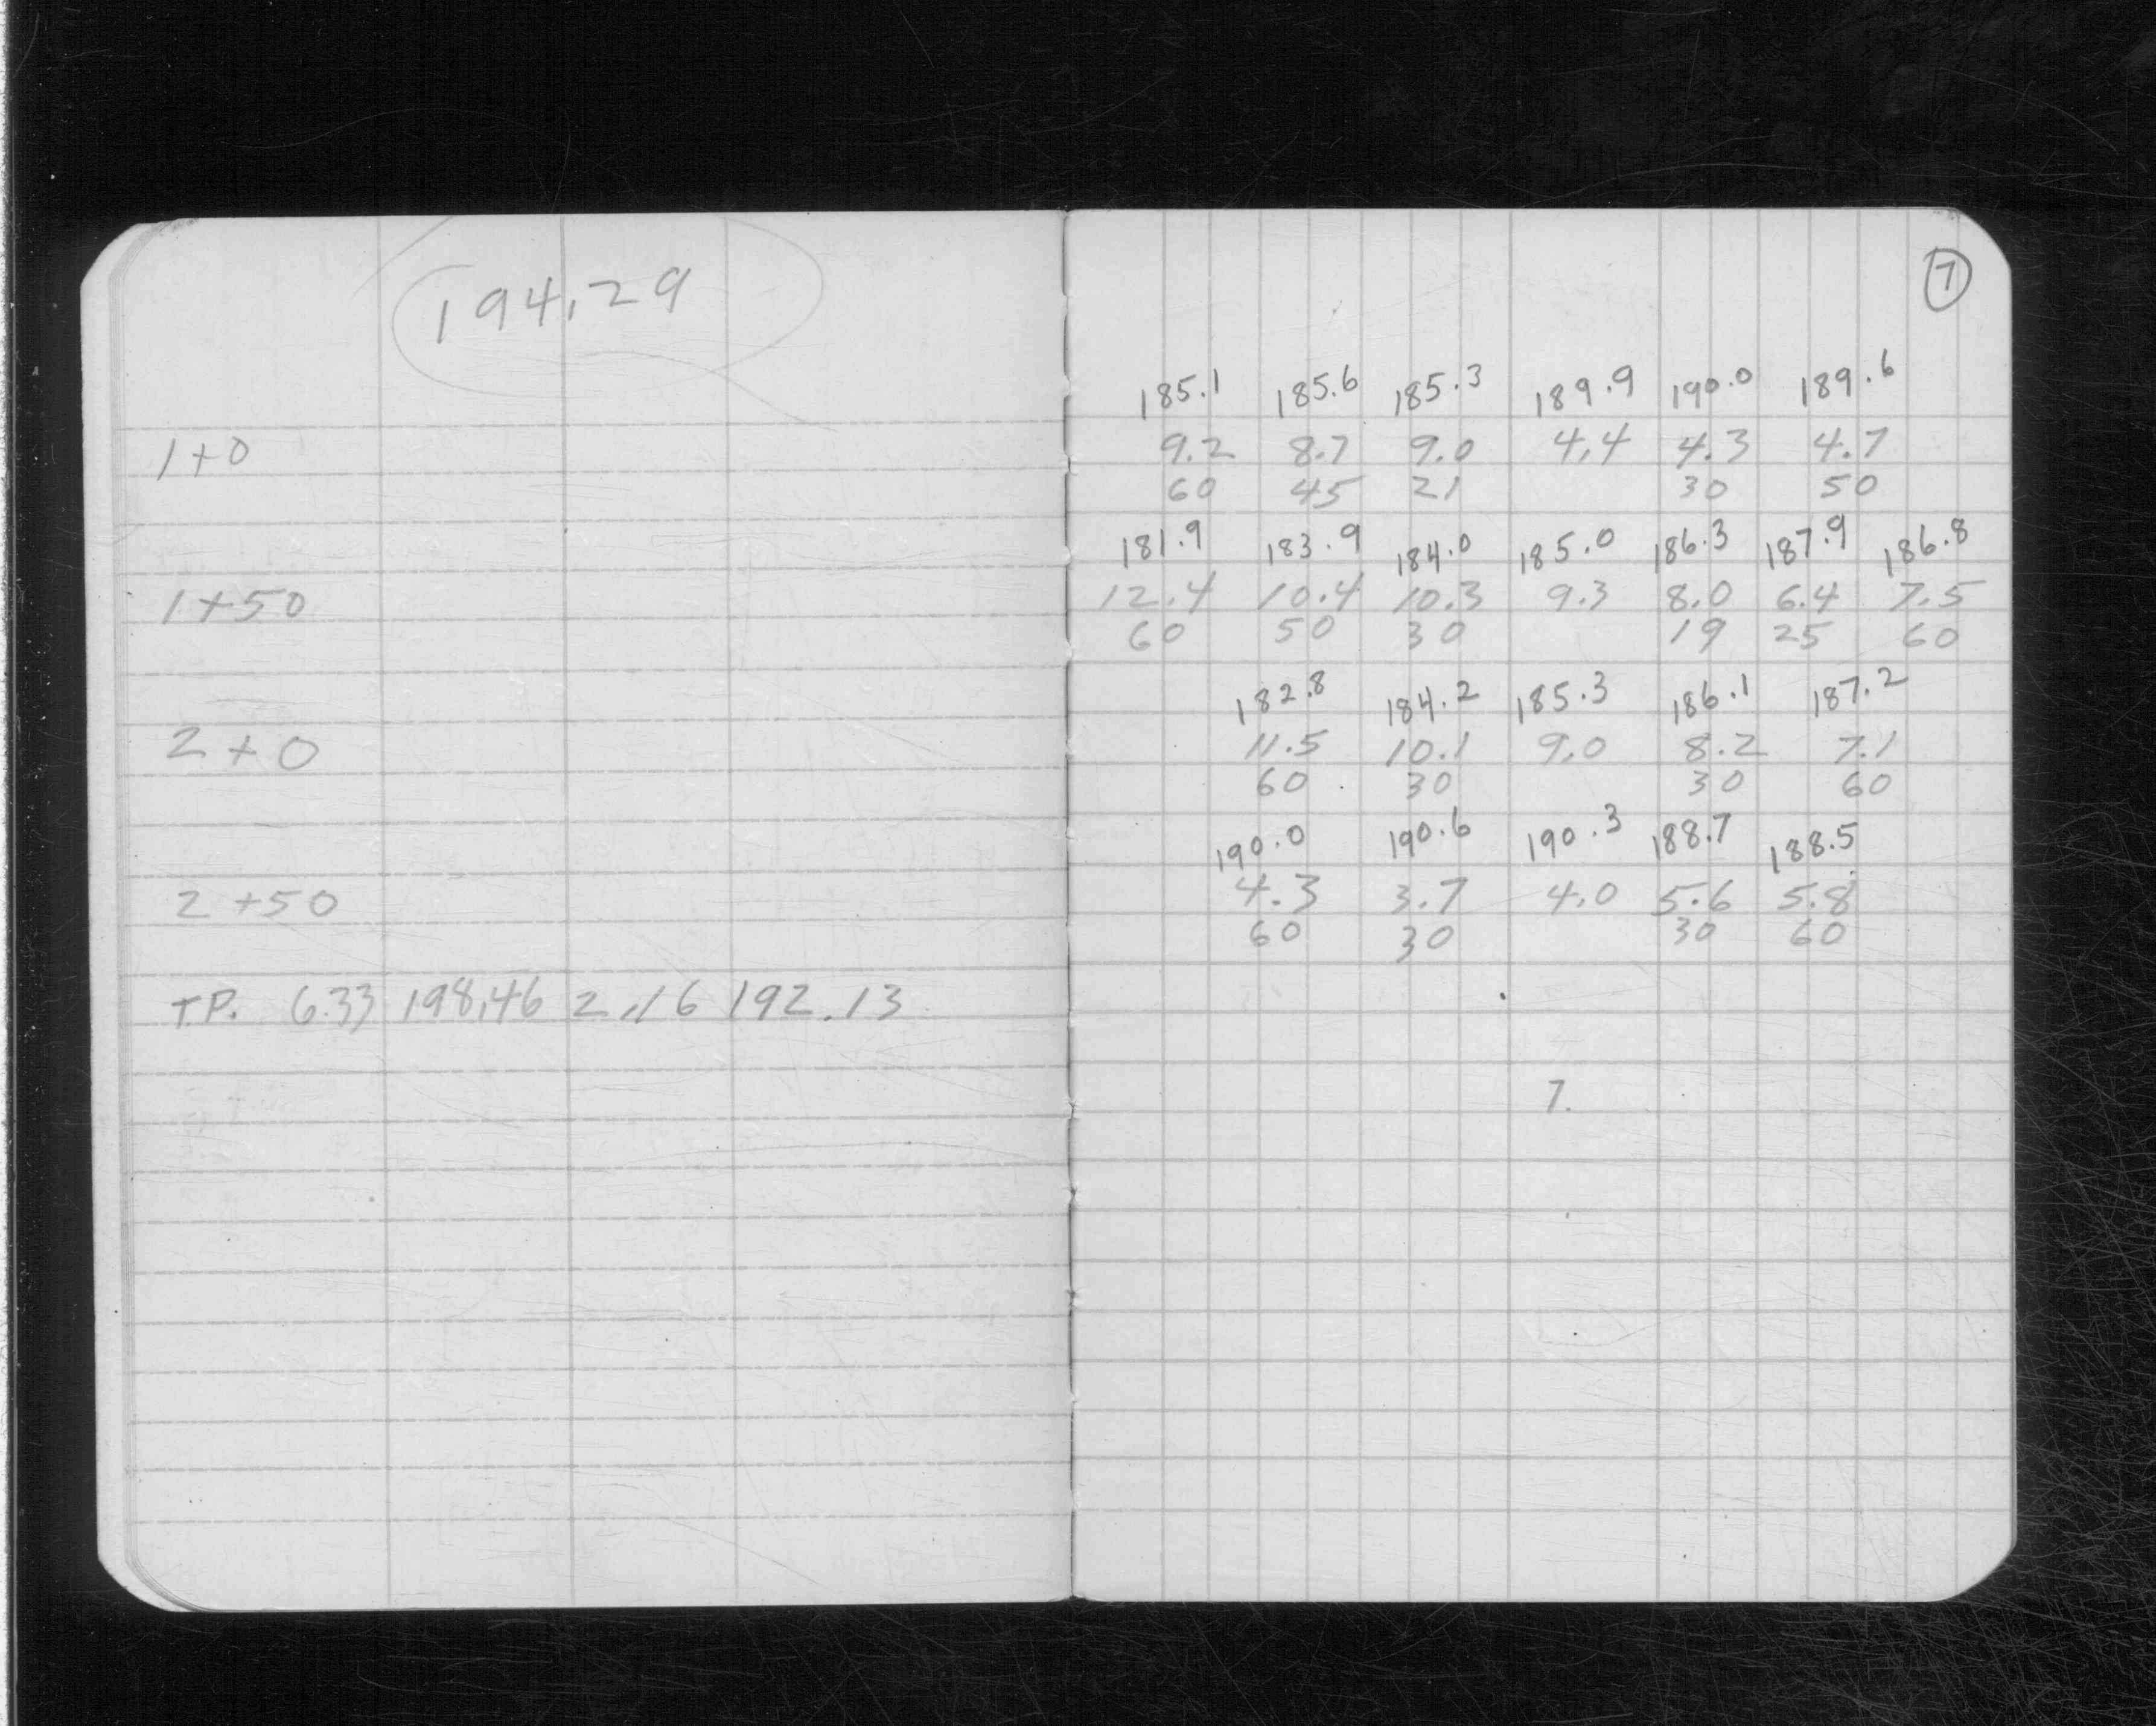 194.29
1+0
1+50
2+0
2+50
T.P. 6.33 198.46 2.16 192.13
7
185.1 185.6 185.3 189.9 190.0 189.6
9.2 8.7 9.0 4.4 4.3 4.7
60 45 21 30 50
181.9 183.9 184.0 185.0 186.3 187.9 186.8
12.4 10.4 10.3 9.3 8.0 6.4 7.5
60 50 30 19 25 60
182.8 184.2 185.3 186.1 187.2
11.5 10.1 9.0 8.2 7.1
60 30 30 60
190.0 190.6 190.3 188.7 188.5
4.3 3.7 4.0 5.6 5.8
60 30 30 60
7.